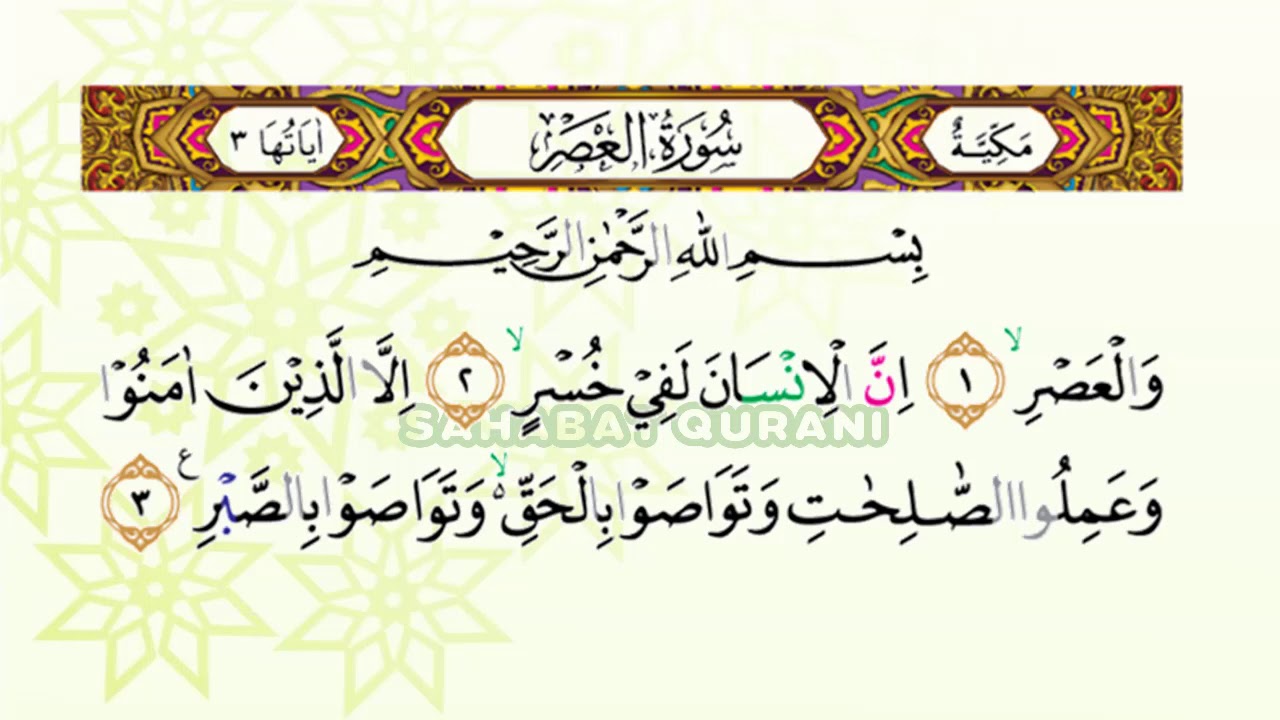 مَكِّيَّةٌ سُورَةُ الْعَصْرِ اٰيَاتُهَا ٣
بِسْمِ اللّٰهِ الرَّحْمٰنِ الرَّحِيْمِ
وَالْعَصْرِۙ ١ اِنَّ الْاِنْسَانَ لَفِيْ خُسْرٍۙ ٢ اِلَّا الَّذِيْنَ اٰمَنُوْا
SAHABAT QURANI
وَعَمِلُوا الصّٰلِحٰتِ وَتَوَاصَوْا بِالْحَقِّ ەۙ وَتَوَاصَوْا بِالصَّبْرِ ࣖ ٣